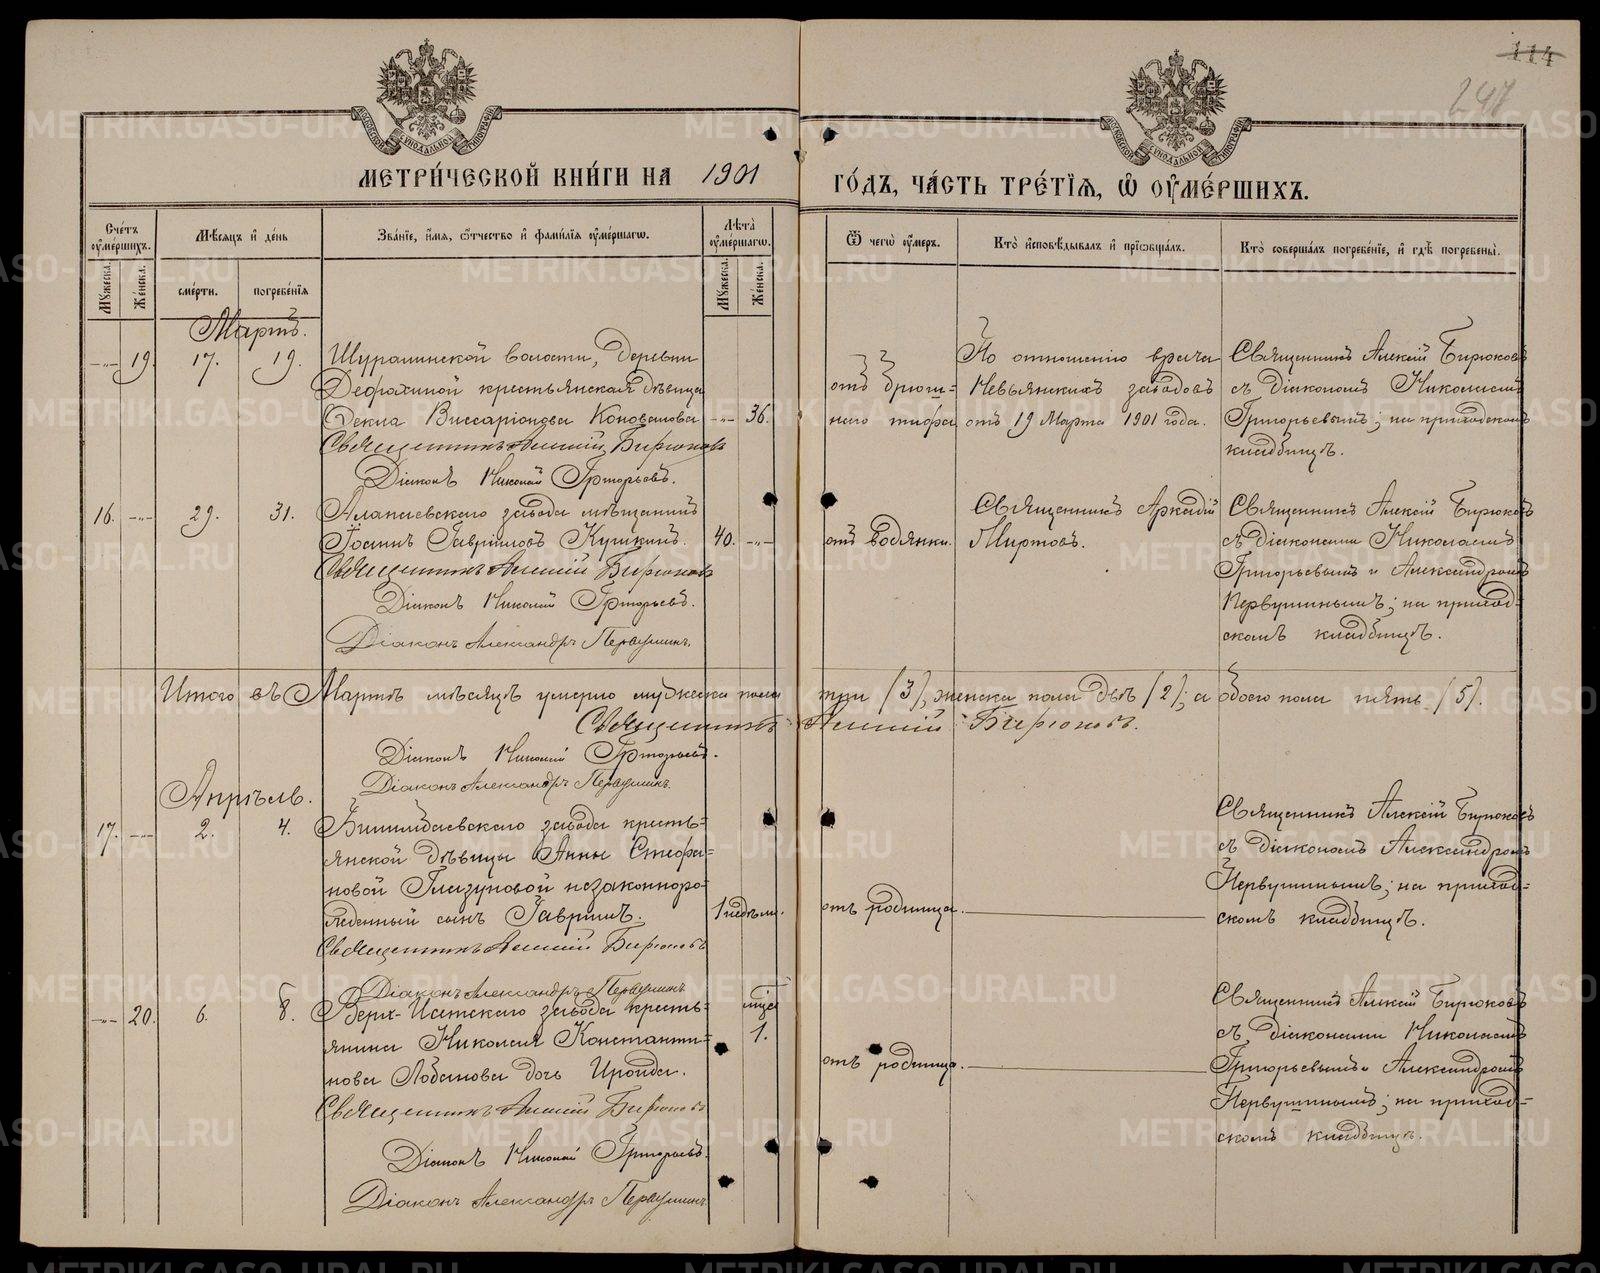 114
247
МЕТРИ́ЧЕСКОЙ КНИ́ГИ НА 1901 ГО́ДЪ, ЧА́СТЬ ТРЕ́ТІѦ, Ѡ҆ ОУ҆МЕ́РШИХЪ.
Сче́тъ оумершихъ.
Мѣсяцъ и день
Зва́нїе, и҆́мя, ѻ҆́тчество и҆ фами́лїя оу҆ме́ршагѡ.
Лѣта оумершагѡ.
Ѿ чегѡ̀ оу҆́меръ.
Кто̀ и҆сповѣ́дывалъ и҆ прїѡбща́лъ.
Кто̀ соверша́лъ погребе́нїе, и҆ гдѣ̀ погребены̀.
Мужеска.
Женска.
сме́рти.
погребе́нїя
Мужеска.
Женска.
Мартъ.
19. 17. 19.
Шуралинской волости, деревни
крестьянская дѣвица
Фекла Виссаріонова Коновалова 36.
Священникъ Алексій Бирюковъ
Діаконъ Николай Григорьевъ.
отъ брюш-
наго тифа
По отношенію врача
Невьянскихъ заводовъ
отъ 19 Марта 1901 года.
Священникъ Алексій Бирюковъ
съ діакономъ Николаемъ
Григорьевымъ; на приходскомъ
кладбищѣ.
16. 29. 31.
Алапаевскаго завода мѣщанинъ
Іоаннъ Гавріиловъ 40.
Священникъ Алексій Бирюковъ
Діаконъ Николай Григорьевъ.
Діаконъ Александръ Первушинъ.
отъ водянки.
Священникъ Аркадій
Миртовъ.
Священникъ Алексій Бирюковъ
съ діаконами Николаемъ
Григорьевымъ и Александромъ
Первушинымъ; на приход-
скомъ кладбищѣ.
Итого въ Мартѣ мѣсяцѣ умерло мужеска пола три (3), женска пола двѣ (2); а обоего пола пять (5).
Священникъ Алексій Бирюковъ.
Діаконъ Николай Григорьевъ.
Діаконъ Александръ Первушинъ.
Апрѣль.
17. 2. 4.
Билимбаевскаго завода кресть-
янской дѣвицы Анны Стефа-
новой Глазуновой незаконноро-
жденный сынъ Гавріилъ. 1 недѣли.
Священникъ Алексій Бирюковъ
Діаконъ Александръ Первушинъ
отъ родимца.
Священникъ Алексій Бирюковъ
съ діакономъ Александромъ
Первушинымъ; на приход-
скомъ кладбищѣ.
20. 6. 8.
Верх-Исетскаго завода кресть-
янина Николая Константи-
нова Лобанова дочь Ираида. 1.
Священникъ Алексій Бирюковъ
Діаконъ Николай Григорьевъ.
Діаконъ Александръ Первушинъ
отъ родимца.
Священникъ Алексій Бирюковъ
съ діаконами Николаемъ
Григорьевымъ и Александромъ
Первушинымъ; на приход-
скомъ кладбищѣ.
METRIKI.GASO-URAL.RU